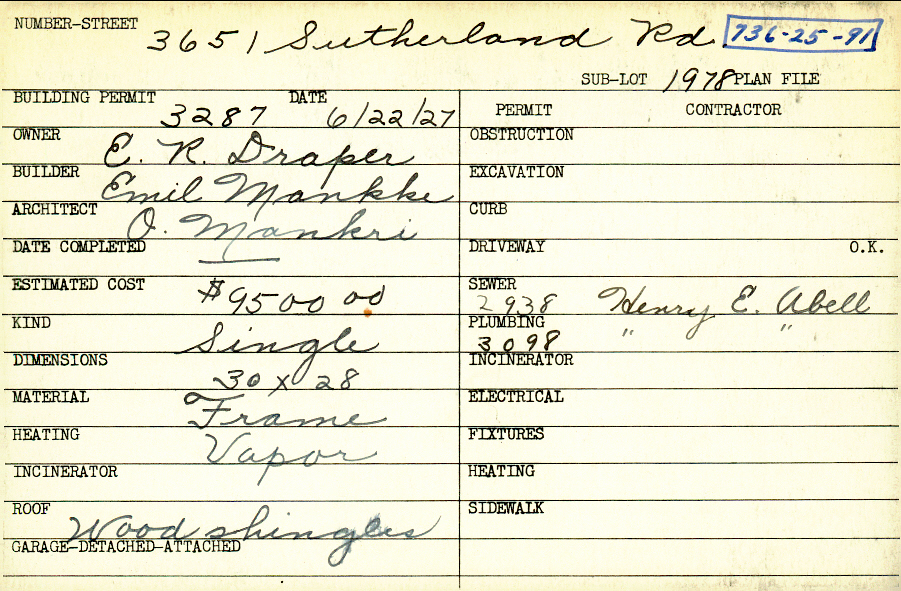 NUMBER-STREET 3651 Sutherland Rd. 736-25-91
SUB-LOT 1978 PLAN FILE
BUILDING PERMIT 3287 DATE 6/22/27
PERMIT CONTRACTOR
OWNER E. R. Draper
OBSTRUCTION
BUILDER Emil Mankke
EXCAVATION
ARCHITECT O. Mankri
CURB
DATE COMPLETED —
DRIVEWAY O.K.
ESTIMATED COST $9500 00
SEWER 2938 Henry E. Abell
KIND Single
PLUMBING 3098 " "
DIMENSIONS 30 x 28
INCINERATOR
MATERIAL Frame
ELECTRICAL
HEATING Vapor
FIXTURES
INCINERATOR
HEATING
ROOF Wood shingles
SIDEWALK
GARAGE-DETACHED-ATTACHED